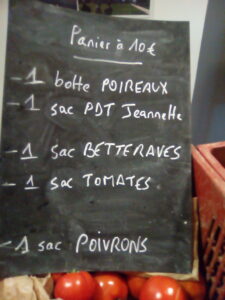 Panier à 10€
- 1 botte POIREAUX
- 1 sac PDT Jeannette
- 1 sac BETTERAVES
- 1 sac TOMATES
- 1 sac POIVRONS